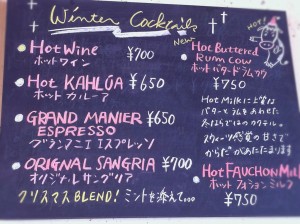 Winter Cocktails
HOT!
• Hot Wine ¥700
ホットワイン
• Hot KAHLÚA ¥650
ホット カルーア
• GRAND MANIER ¥650
ESPRESSO
グランマニエ エスプレッソ
• ORIGNAL SANGRIA ¥700
オリジナル サングリア
クリスマスBLEND! ミントを添えて...
New
• Hot Buttered
Rum Cow
ホットバタードラムカウ
¥750
Hot Milkに上質な
バターとラムをあわせた
冬ならではのカクテル。
スウィーツ感覚の甘さで
からだがあたたまります
• Hot FAUCHON Milk
ホット フォションミルク
¥750